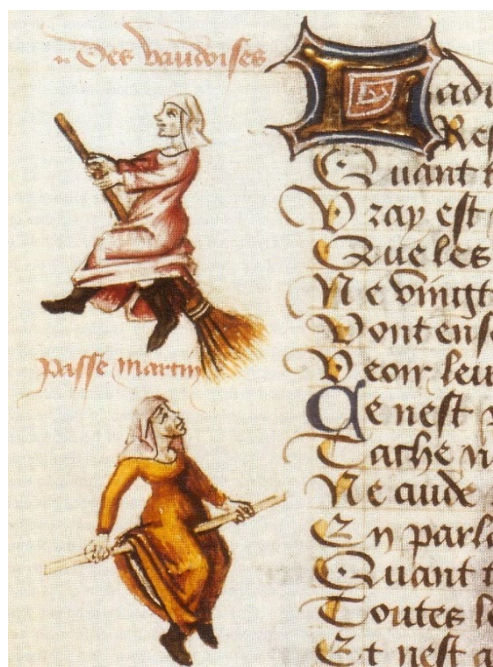 Des vaudoises
passe martin
adi
Res
Quant t
Vray est
Que les
Ne vingt
Vont ense
Veoir leu
Ce nest p
Tache n
Ne cuide
En parle
Quant t
Toutes le
Et nest a